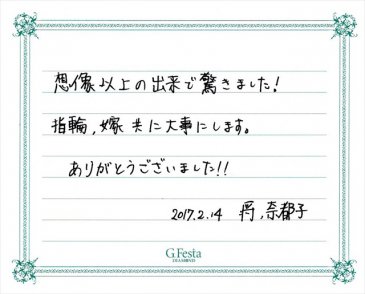 想像以上の出来で驚きました!
指輪,嫁 共に大事にします。
ありがとうございました!!
2017.2.14 将,奈都子
G.Festa
DIAMOND